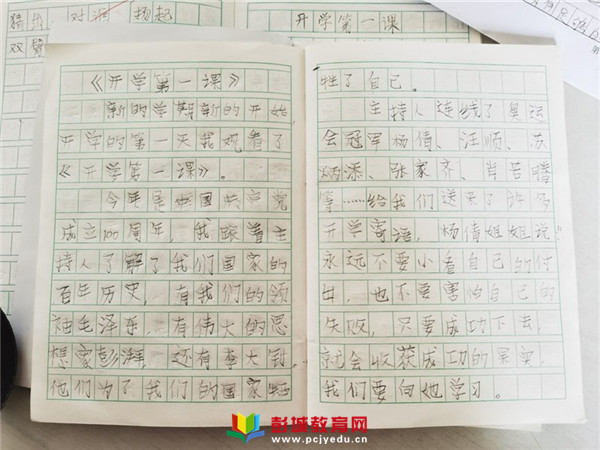 猜
对
扬起
双臂
开学第一课
《开学第一课》
新的学期新的开始
开学的第一天我观看了
《开学第一课》。
今年是中国共产党
成立100周年,我跟着主
持人了解了我们国家的
百年历史,有我们的领
袖毛泽东,有伟大的思
想家彭湃,还有李大钊,
他们为了我们的国家牺
牲了自己。
主持人连线了奥运
会冠军杨倩、汪顺、苏
炳添、张家齐、肖若腾
等……给我们送来了许多
开学寄语,杨倩姐姐说
永远不要小看自己的付
出,也不要害怕自己的
失败,只要成功下去,
就会收获成功的果实,
我们要向她学习。
彭城教育网
www.pcjyedu.cn